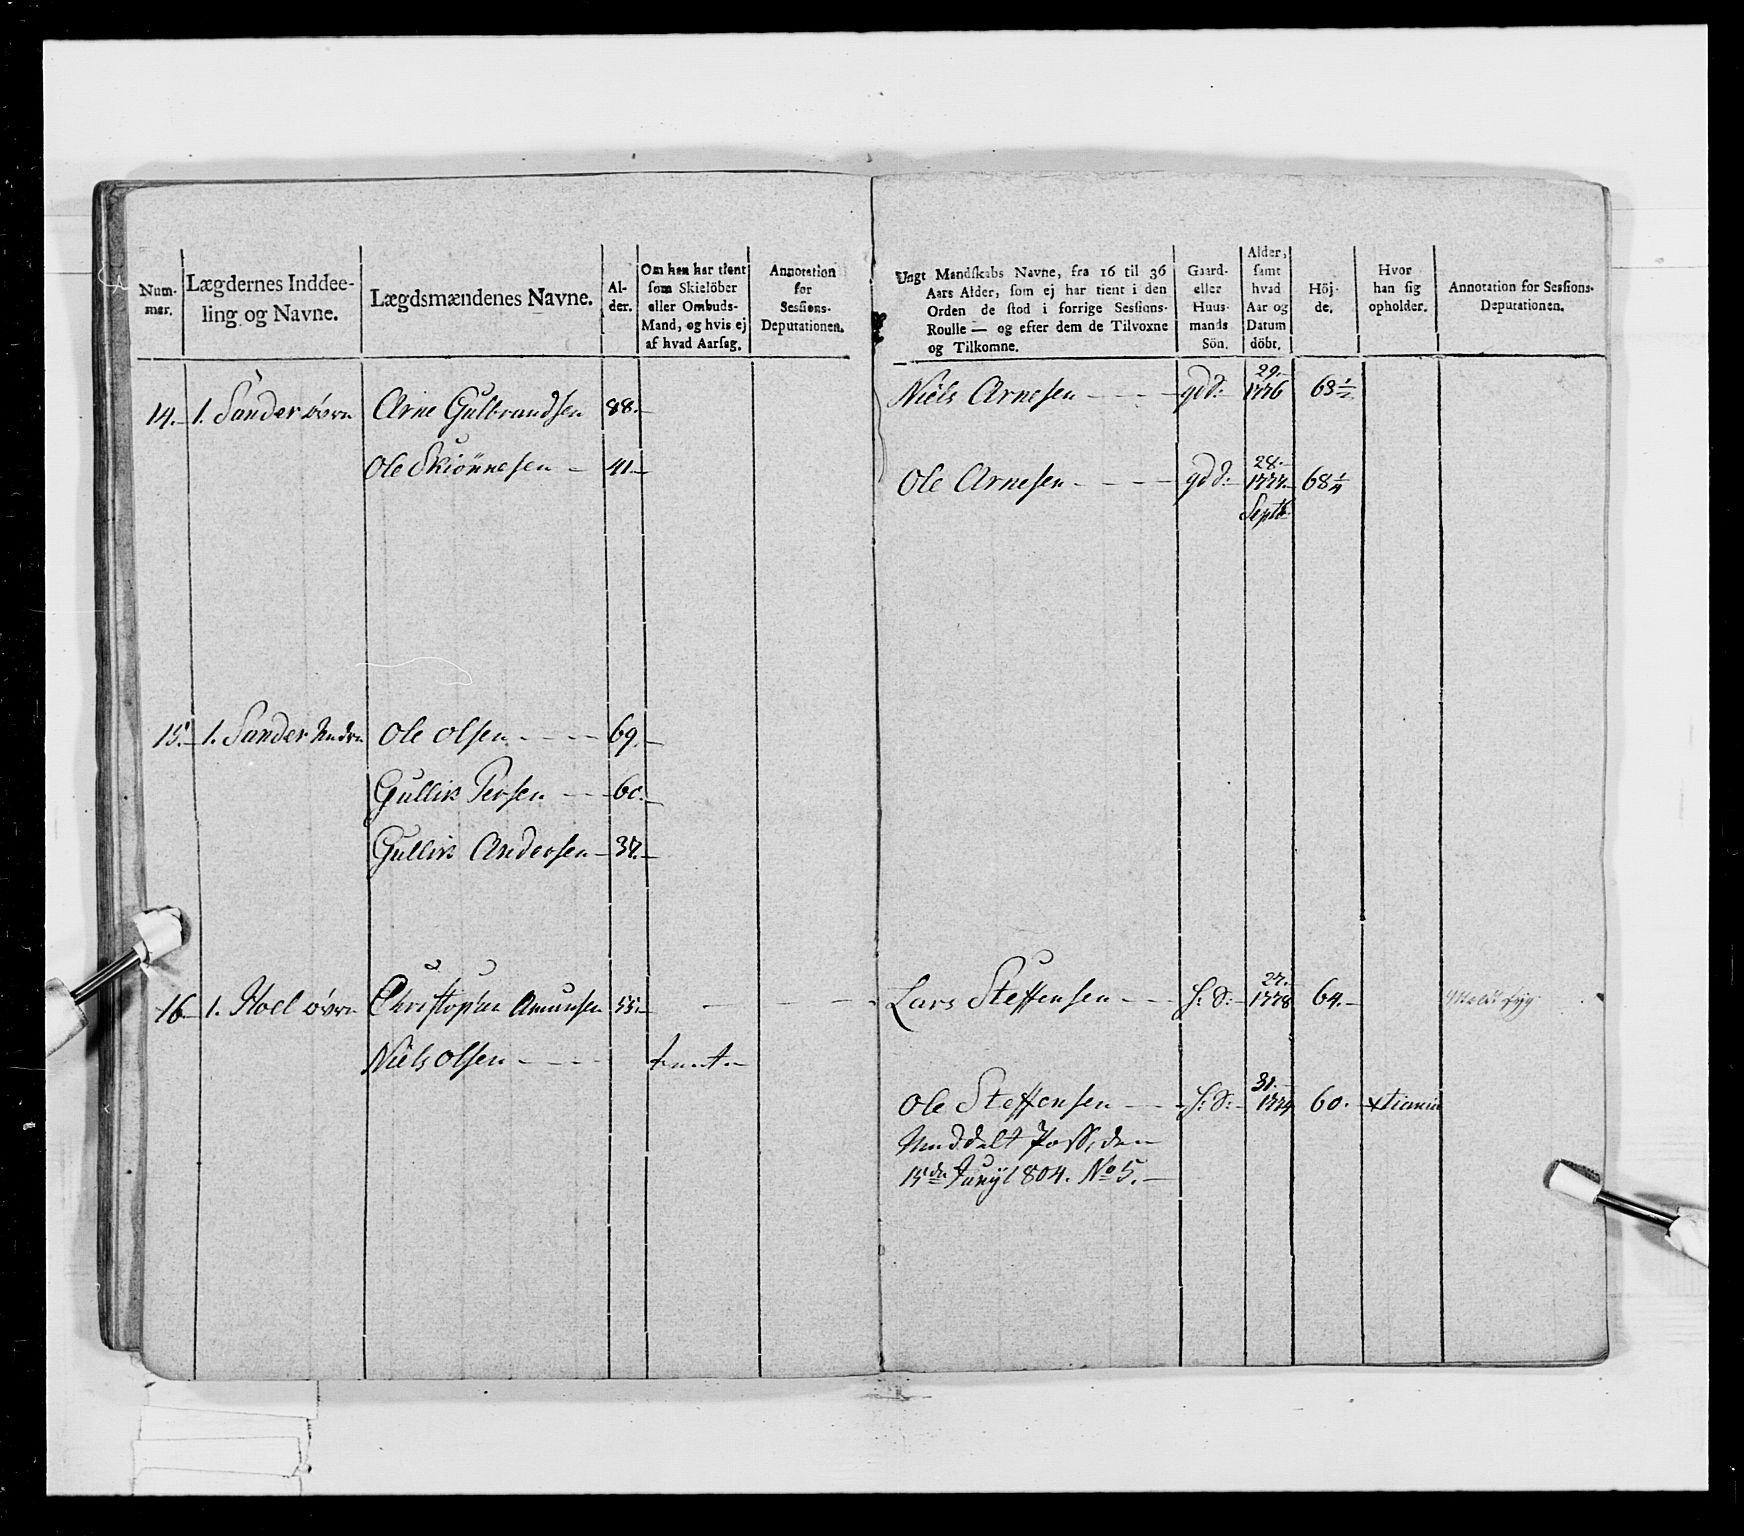 Num-
mer.
Lægdernes Inddee-
ling og Navne.
Lægdsmændenes Navne.
Al-
der.
Om han har tient
som Skielöber
eller Ombuds-
Mand, og hvis ej
af hvad Aarsag.
Annotation
for
Sessions-
Deputationen.
14. 1. Sander øvre Arne Gulbrandsen 88.
Ole Skiönnesen 41
15. 1. Sander Nedre Ole Olsen 69.
Gullik Persen 60.
Gullik Andersen 37.
16 1. Hoel øvre Christopher Amunsen 55.
Niels Olsen tient
Ungt Mandskabs Navne, fra 16 til 36
Aars Alder, som ej har tient i den
Orden de stod i forrige Sessions-
Roulle — og efter dem de Tilvoxne
og Tilkomne.
Gaard-
eller
Huus-
mands
Sön.
Alder,
samt
hvad
Aar og
Datum
döbt.
Höj-
de.
Hvor
han sig
opholder.
Annotation for Sessions-
Deputationen.
29.
Niels Arnesen gd S. 1776 63 1/2
28.
Ole Arnesen gd S. 1777. 68 1/4
Septb
27.
Lars Steffensen H: S: 1778 64. syg
31.
Ole Steffensen H: S: 1774 60. Xtiania
Meddelt Pass, den
15de Junÿ 1804. No 5.